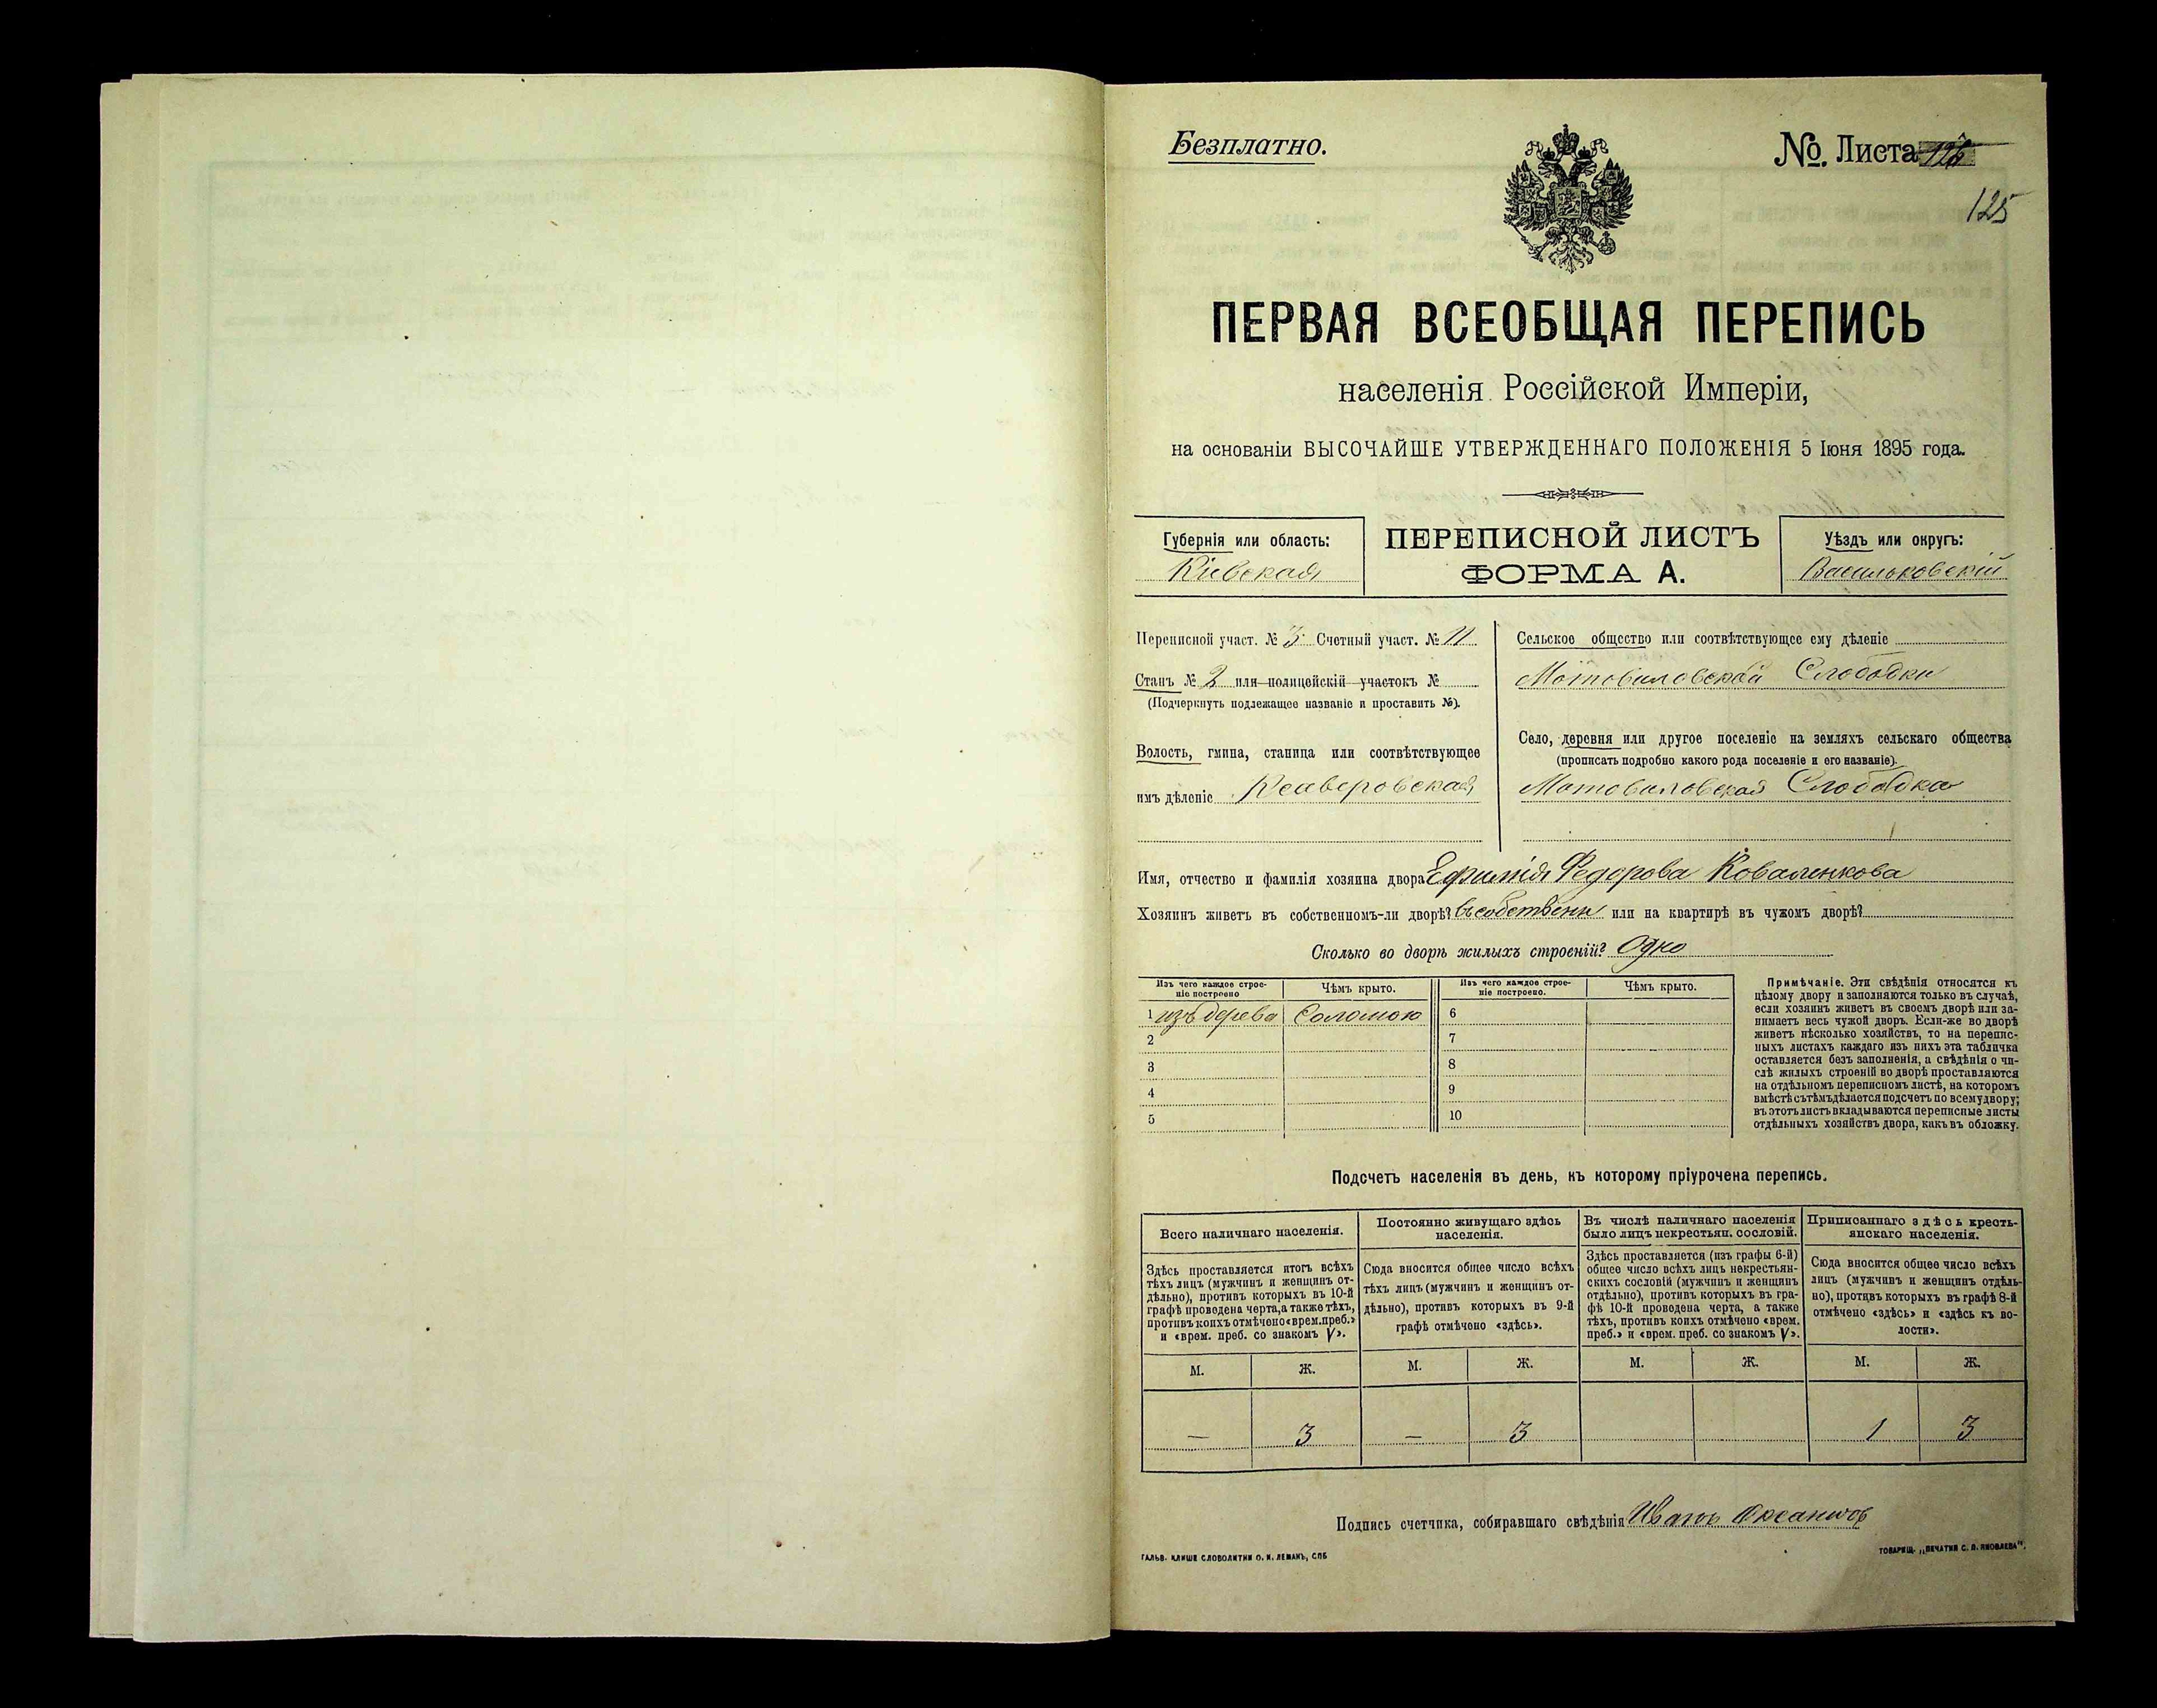 Безплатно.
№. Листа 126
125
ПЕРВАЯ ВСЕОБЩАЯ ПЕРЕПИСЬ
населенія Россійской Имперіи,
на основаніи ВЫСОЧАЙШЕ УТВЕРЖДЕННАГО ПОЛОЖЕНІЯ 5 Іюня 1895 года.
Губернія или область:
Кіевская
ПЕРЕПИСНОЙ ЛИСТЪ
ФОРМА А.
Уѣздъ или округъ:
Васильковскій
Переписной участ. № 3 Счетный участ. № 11
Станъ № 2 или полицейскій участокъ №
(Подчеркнуть подлежащее названіе и проставить №).
Волость, гмина, станица или соотвѣтствующее
имъ дѣленіе
Сельское общество или соотвѣтствующее ему дѣленіе
Мотовиловской Слободки
Село, деревня или другое поселеніе на земляхъ сельскаго общества
(прописать подробно какого рода поселеніе и его названіе).
Мотовиловская Слободка
Имя, отчество и фамилія хозяина двора Федорова Коваленкова
Хозяинъ живетъ въ собственномъ-ли дворѣ? въ собственн или на квартирѣ въ чужомъ дворѣ?
Сколько во дворѣ жилыхъ строеній? Одно
Изъ чего каждое строе-
ніе построено
Чѣмъ крыто.
Изъ чего каждое строе-
ніе построено.
Чѣмъ крыто.
1 изъ дерева Соломою 6
2 7
3 8
4 9
5 10
Примѣчаніе. Эти свѣдѣнія относятся къ
цѣлому двору и заполняются только въ случаѣ,
если хозяинъ живетъ въ своемъ дворѣ или за-
нимаетъ весь чужой дворъ. Если-же во дворѣ
живетъ нѣсколько хозяйствъ, то на перепис-
ныхъ листахъ каждаго изъ нихъ эта табличка
оставляется безъ заполненія, а свѣдѣнія о чи-
слѣ жилыхъ строеній во дворѣ проставляются
на отдѣльномъ переписномъ листѣ, на которомъ
вмѣстѣ съ тѣмъ дѣлается подсчетъ по всему двору;
въ этотъ листъ вкладываются переписные листы
отдѣльныхъ хозяйствъ двора, какъ въ обложку.
Подсчетъ населенія въ день, къ которому пріурочена перепись.
Всего наличнаго населенія.
Здѣсь проставляется итогъ всѣхъ
тѣхъ лицъ (мужчинъ и женщинъ от-
дѣльно), противъ которыхъ въ 10-й
графѣ проведена черта, а также тѣхъ,
противъ коихъ отмѣчено «врем. преб.»
и «врем. преб. со знакомъ V».
Постоянно живущаго здѣсь
населенія.
Сюда вносится общее число всѣхъ
тѣхъ лицъ (мужчинъ и женщинъ от-
дѣльно), противъ которыхъ въ 9-й
графѣ отмѣчено «здѣсь».
Въ числѣ наличнаго населенія
было лицъ некрестьян. сословій.
Здѣсь проставляется (изъ графы 6-й)
общее число всѣхъ лицъ некрестьян-
скихъ сословій (мужчинъ и женщинъ
отдѣльно), противъ которыхъ въ гра-
фѣ 10-й проведена черта, а также
тѣхъ, противъ коихъ отмѣчено «врем.
преб.» и «врем. преб. со знакомъ V».
Приписаннаго здѣсь кресть-
янскаго населенія.
Сюда вносится общее число всѣхъ
лицъ (мужчинъ и женщинъ отдѣль-
но), противъ которыхъ въ графѣ 8-й
отмѣчено «здѣсь» и «здѣсь къ во-
лости».
М. Ж. М. Ж. М. Ж. М. Ж.
— 3 — 3 1 3
Подпись счетчика, собиравшаго свѣдѣнія Иванъ
ГАЛЬВ. КЛИШЕ СЛОВОЛИТНИ О. И. ЛЕМАНЪ, СПБ
ТОВАРИЩ. „ПЕЧАТНЯ С. П. ЯКОВЛЕВА".